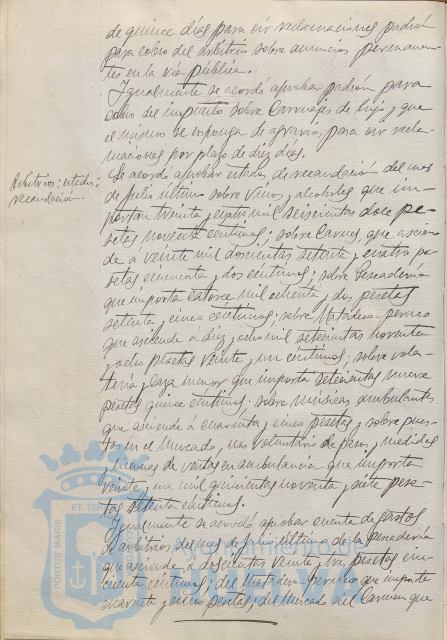 de quince días para oir reclamaciones padrón
para cobro del arbitrio sobre anuncios permanen-
tes en la vía pública.
Igualmente se acordó aprobar padrón para
cobro del impuesto sobre Carruajes de lujo y que
el mismo se exponga de agravios para oir recla-
maciones por plazo de diez días.
Arbitrios: estados:
recaudación.
Se acordó aprobar estados de recaudación del mes
de Julio último sobre Vinos, alcoholes que im-
portan treinta y cuatro mil seiscientas doce pe-
setas noventa centimos; sobre Carnes, que ascien-
de a veinte mil doscientas setenta y cuatro pe-
setas cincuenta y dos centimos; sobre Pescadería
que importa catorce mil ochenta y dos pesetas
setenta y cinco centimos; sobre Matadero-porcino
que asciende a diez y ocho mil setecientas noventa
y ocho pesetas veinte y un céntimos; sobre vola-
tería y caza menor que importa setecientas nueve
pesetas quince centimos; sobre músicas ambulantes
que asciende a cuarenta y cinco pesetas y sobre pues-
tos en el Mercado, uso voluntario de pesas y medidas
y licencias de ventas en ambulancia que importa
veinte y un mil quinientas noventa y siete pese-
tas setenta centimos.
Igualmente se acordó aprobar cuenta de gastos
de arbitrios del mes de Julio último de la pescadería
que asciende a doscientas veinte y tres pesetas cin-
cuenta centimos; del Matadero-porcino que importa
cuarenta y cinco pesetas; del Mercado del Carmen que
PORTUS MARIS ET TERRAE
Ayuntamiento de
HUELVA